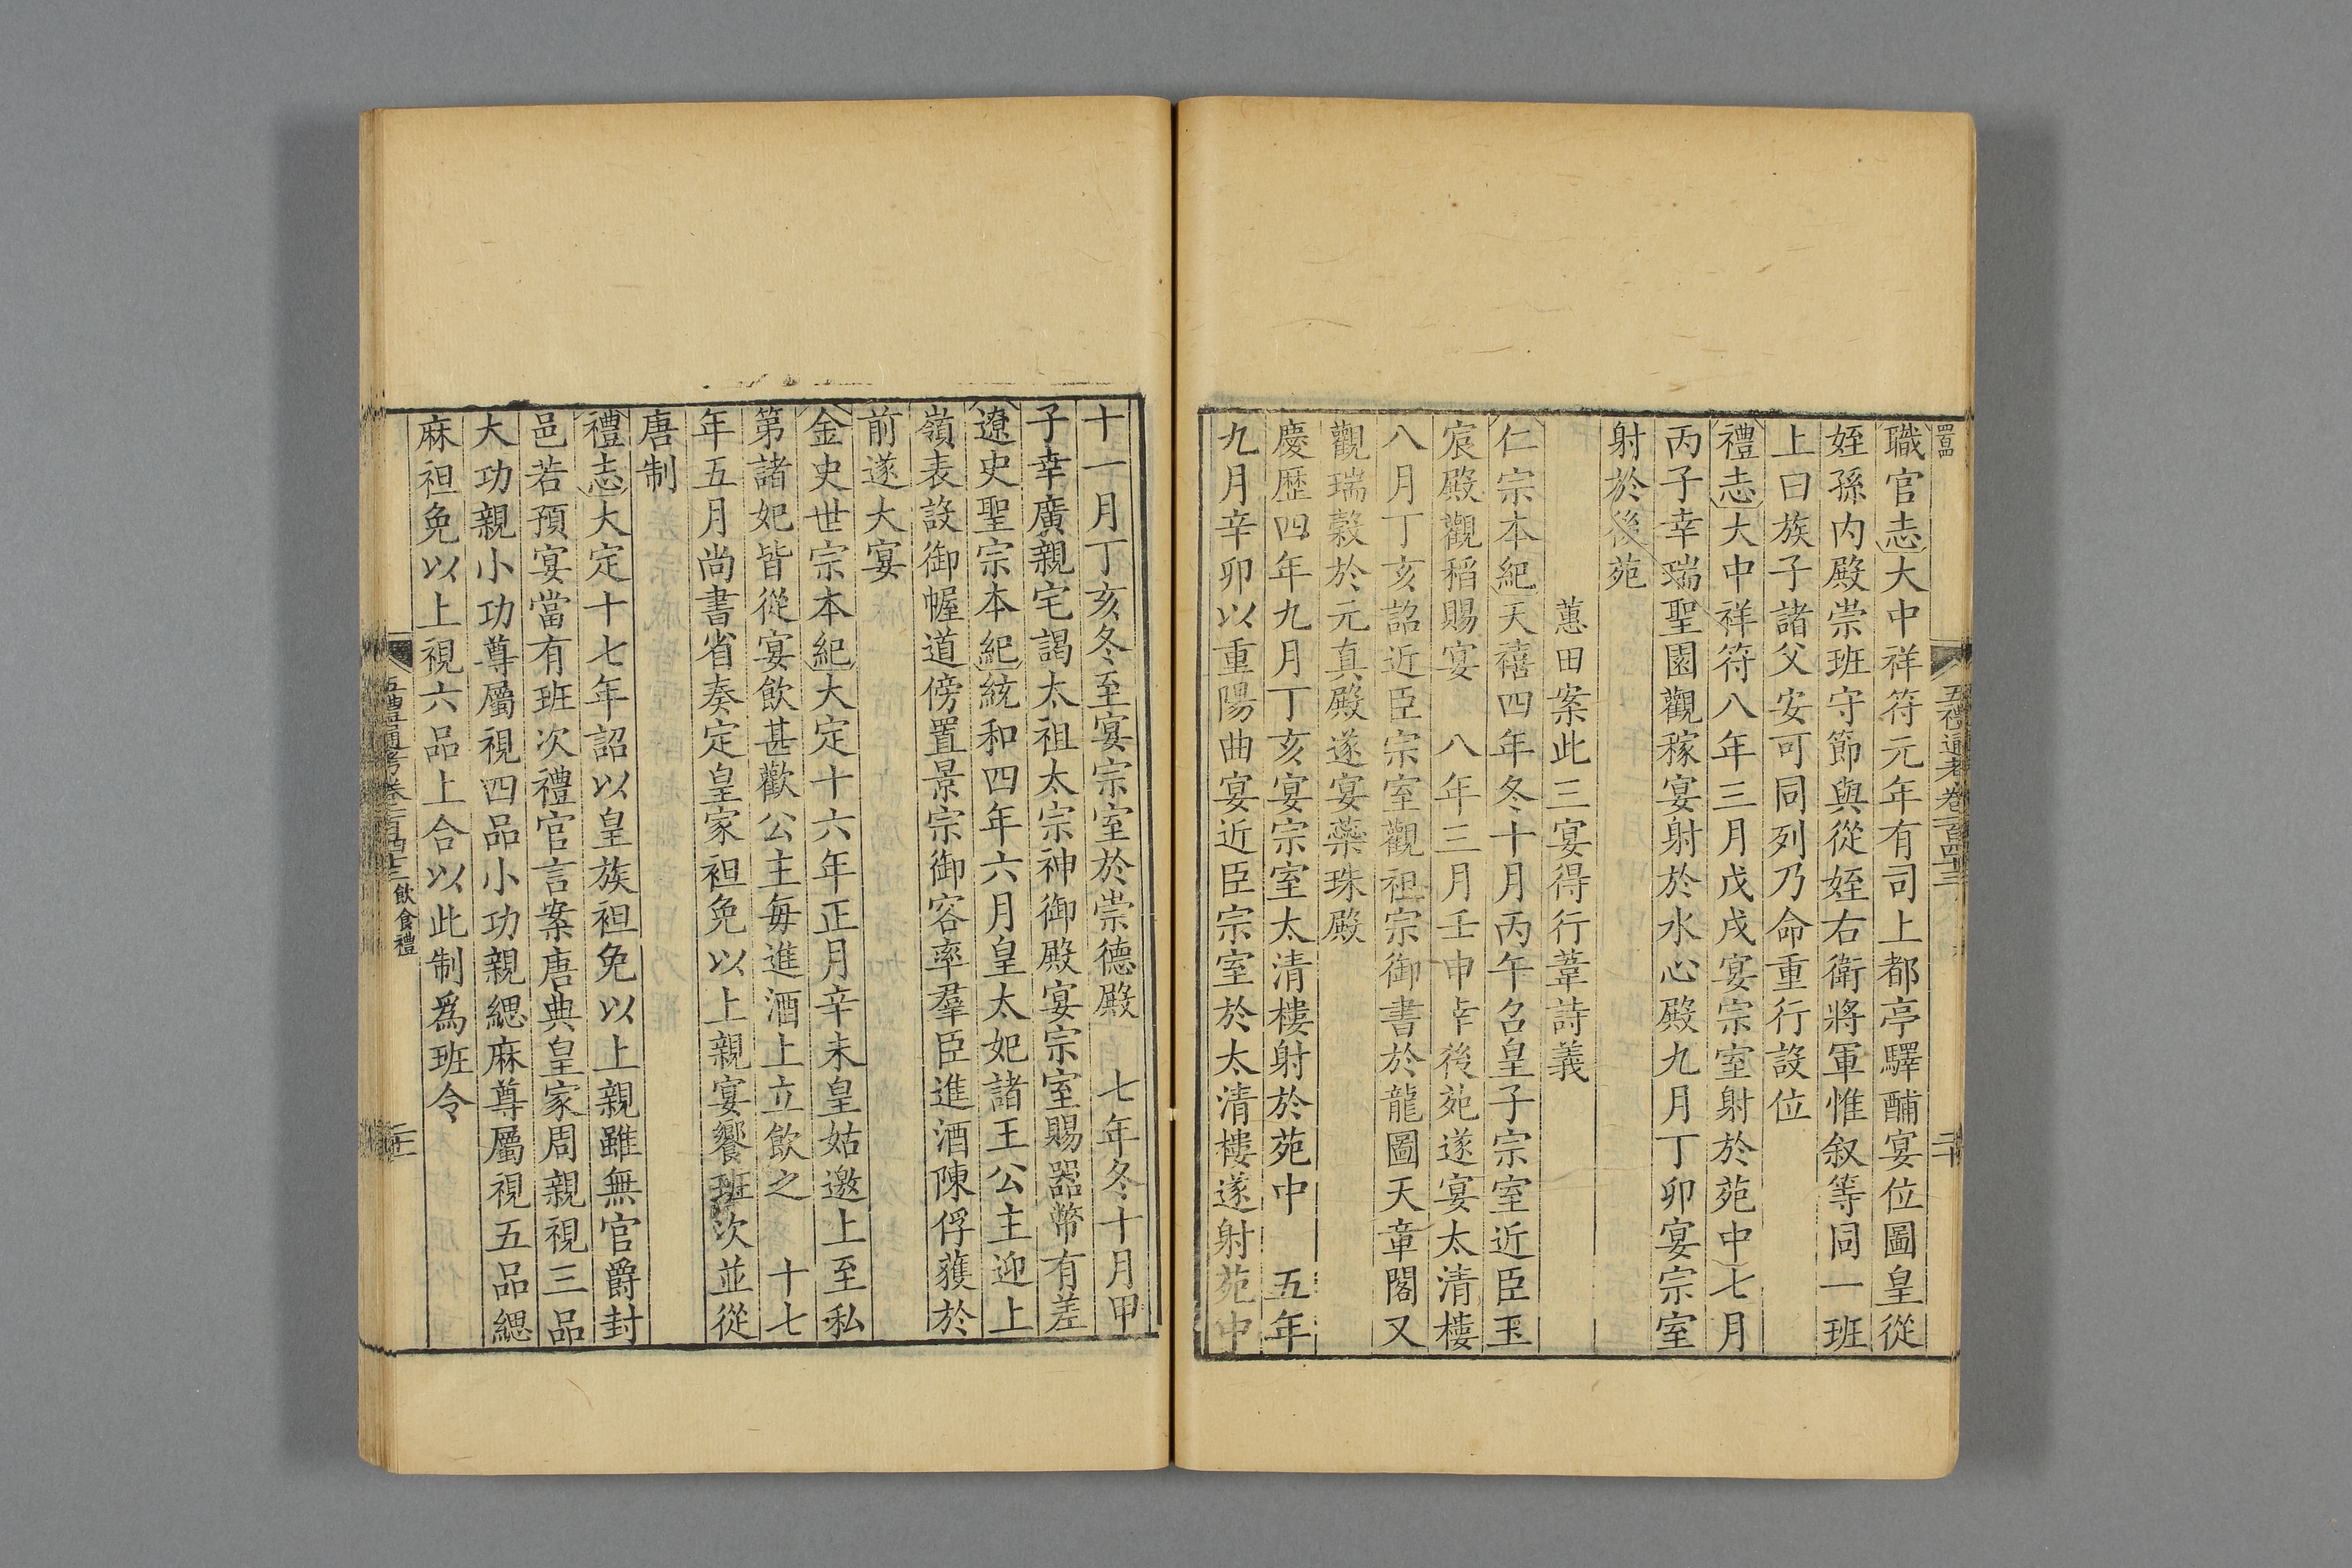 職官志大中祥符元年有司上都亭驛酺宴位圖皇從
姪孫内殿崇班守節與從姪右衛將軍惟叙等同一班
上曰族子諸父安可同列乃命重行設位
禮志大中祥符八年三月戊戌宴宗室射於苑中七月
丙子幸瑞聖園觀稼宴射於水心殿九月丁卯宴宗室
射於後苑
蕙田案此三宴得行葦詩義
仁宗本紀天禧四年冬十月丙午召皇子宗室近臣玉
宸殿觀稻賜宴 八年三月壬申幸後苑遂宴太清樓
八月丁亥詔近臣宗室觀祖宗御書於龍圖天章閣又
觀瑞穀於元真殿遂宴蘂珠殿
慶歷四年九月丁亥宴宗室太清樓射於苑中 五年
九月辛卯以重陽曲宴近臣宗室於太清樓遂射苑中
十一月丁亥冬至宴宗室於崇德殿 七年冬十月甲
子幸廣親宅謁太祖太宗神御殿宴宗室賜器幣有差
遼史聖宗本紀統和四年六月皇太妃諸王公主迎上
嶺表設御幄道傍置景宗御容率羣臣進酒陳俘獲於
前遂大宴
金史世宗本紀大定十六年正月辛未皇姑邀上至私
第諸妃皆從宴飲甚歡公主每進酒上立飲之 十七
年五月尚書省奏定皇家袒免以上親宴饗班次並從
唐制
禮志大定十七年詔以皇族袒免以上親雖無官爵封
邑若預宴當有班次禮官言案唐典皇家周親視三品
大功親小功尊屬視四品小功親緦麻尊屬視五品緦
麻袒免以上視六品上合以此制爲班令
五禮通考卷一百四十三 飲食禮